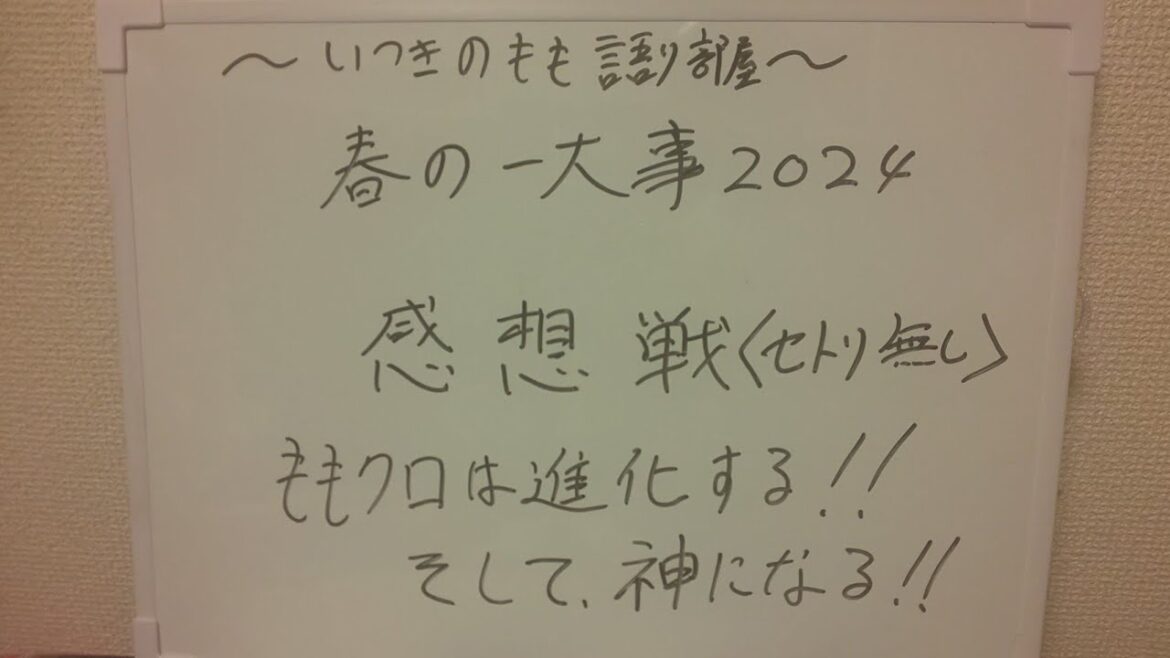 ～いつきのもも語り部屋～
春の一大事2024
感想戦〈セトリ無し〉
ももクロは進化する!!
そして、神になる!!